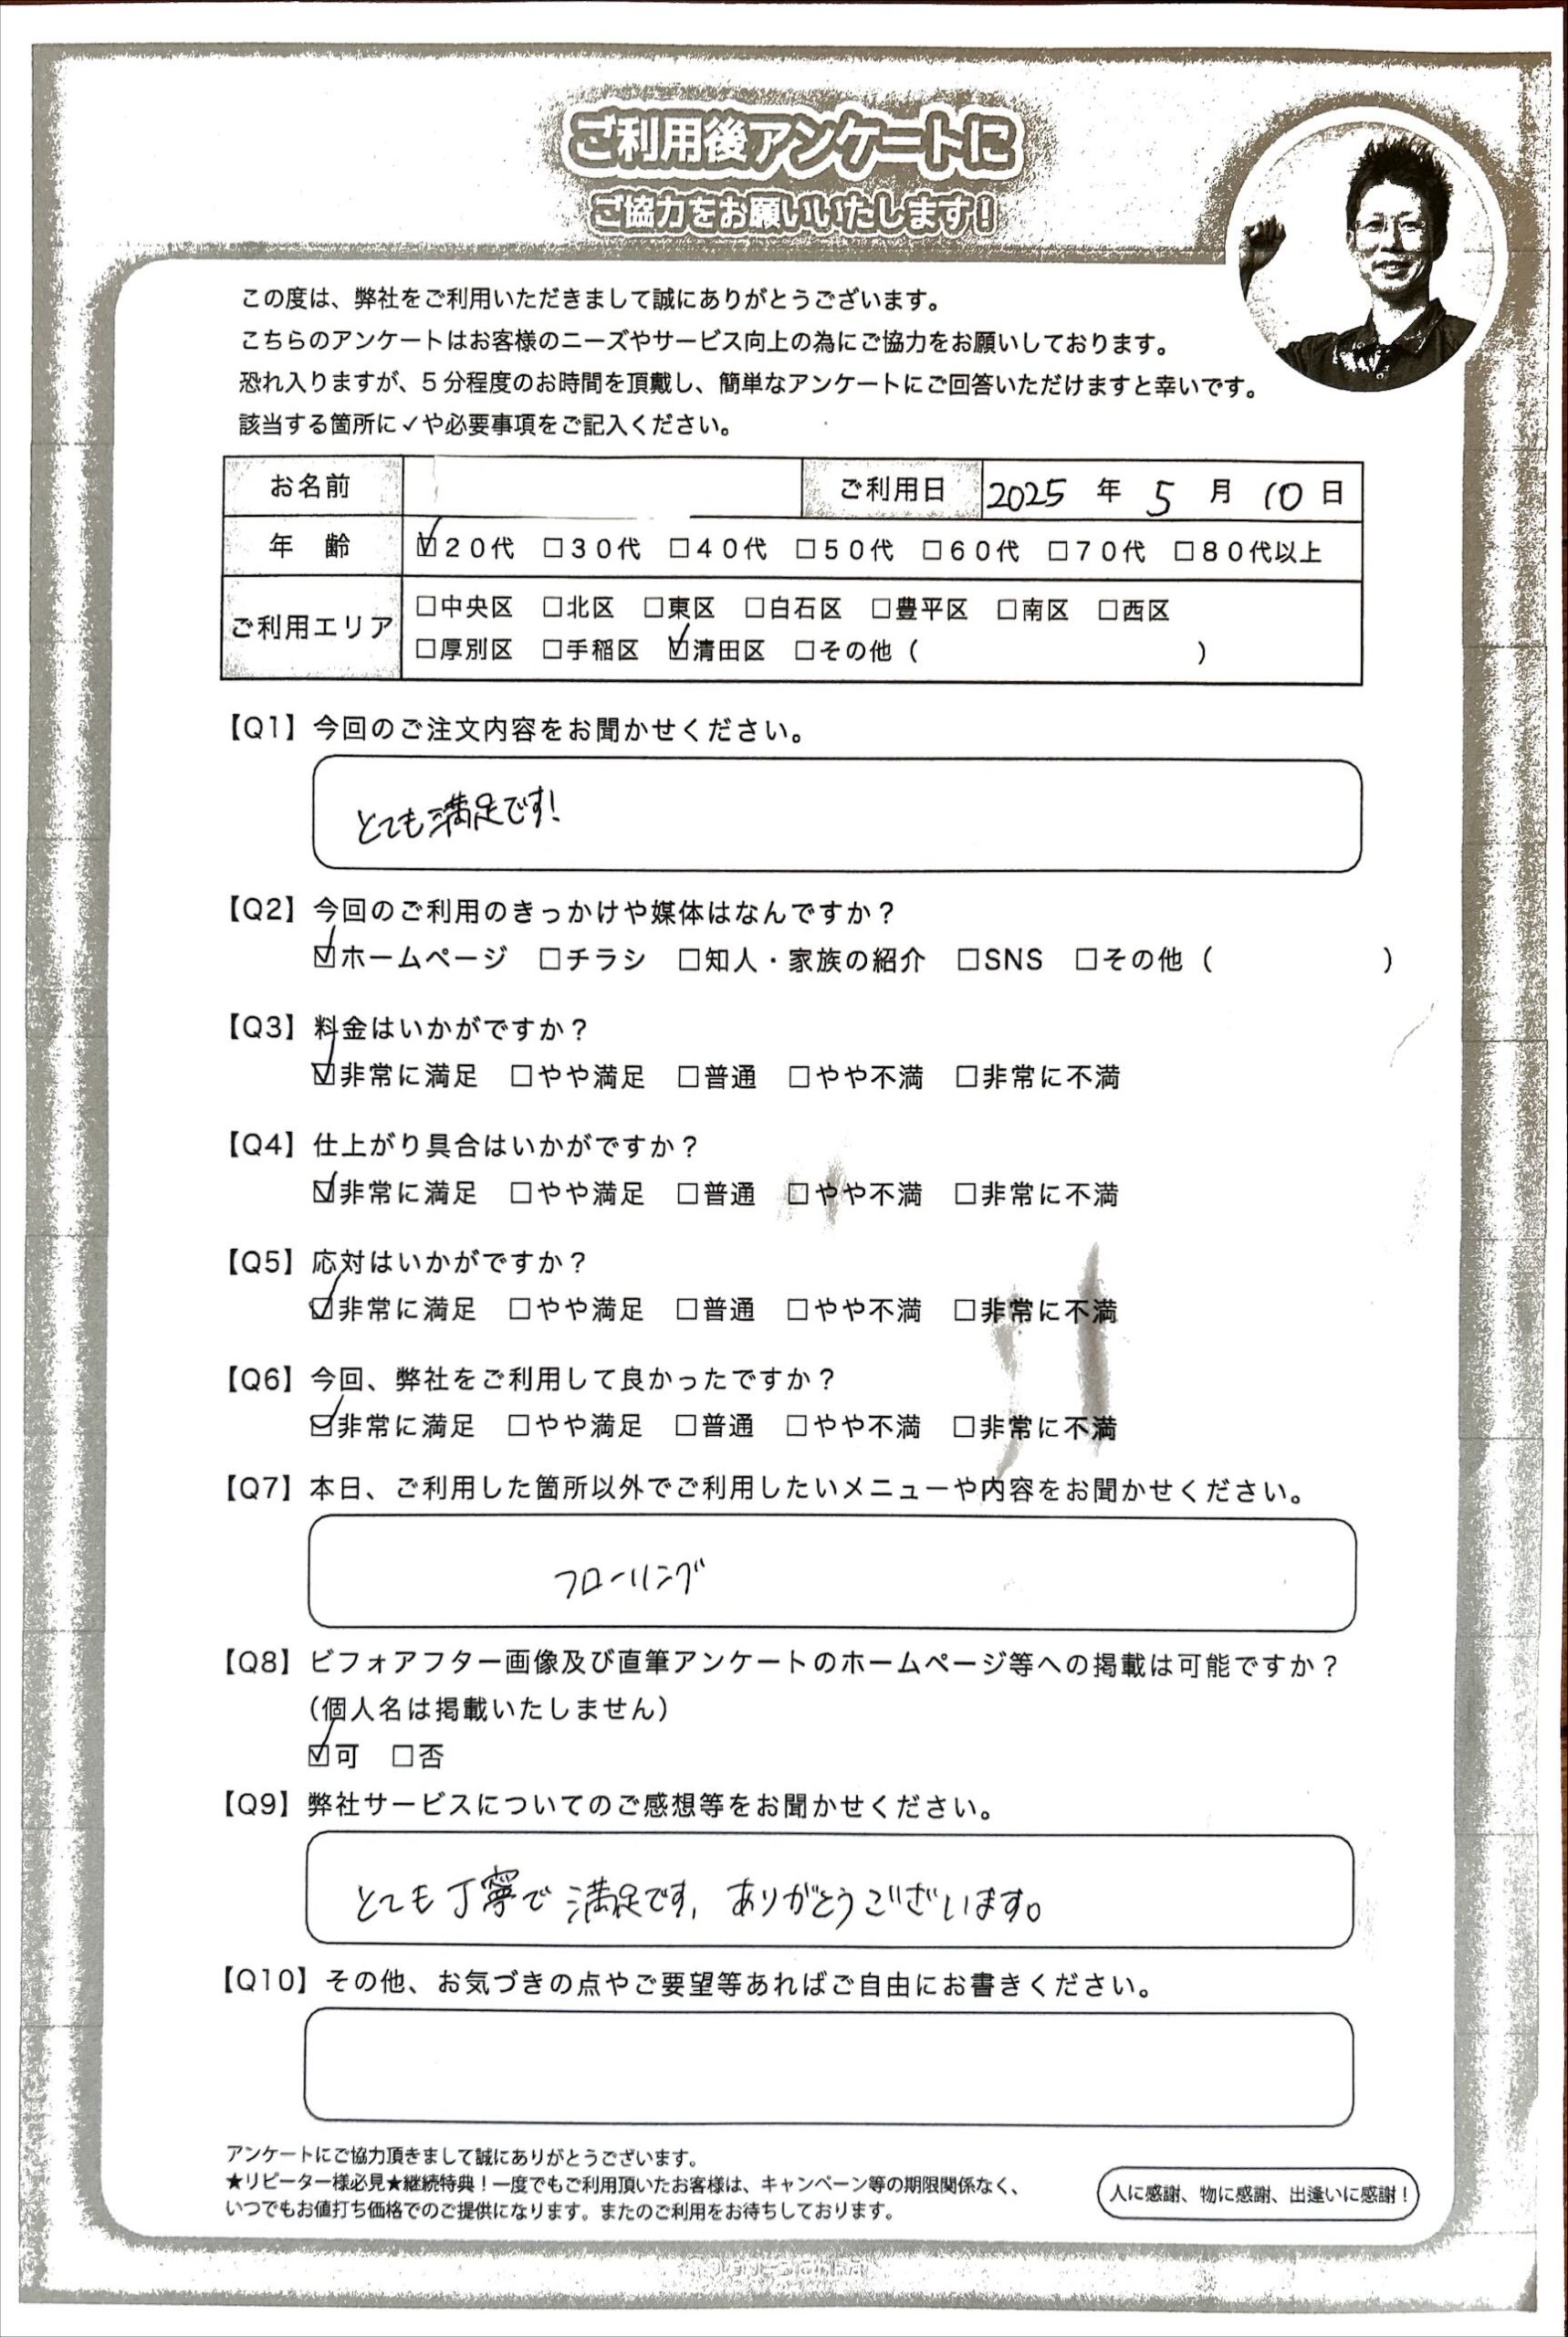 ご利用後アンケートに
ご協力をお願いいたします!
この度は、弊社をご利用いただきまして誠にありがとうございます。
こちらのアンケートはお客様のニーズやサービス向上の為にご協力をお願いしております。
恐れ入りますが、5分程度のお時間を頂戴し、簡単なアンケートにご回答いただけますと幸いです。
該当する箇所に✓や必要事項をご記入ください。
お名前 ご利用日 2025 年 5 月 10 日
年 齢 ☑20代 □30代 □40代 □50代 □60代 □70代 □80代以上
ご利用エリア □中央区 □北区 □東区 □白石区 □豊平区 □南区 □西区
□厚別区 □手稲区 ☑清田区 □その他（ ）
【Q1】今回のご注文内容をお聞かせください。
とても満足です!
【Q2】今回のご利用のきっかけや媒体はなんですか？
☑ホームページ □チラシ □知人・家族の紹介 □SNS □その他（ ）
【Q3】料金はいかがですか？
☑非常に満足 □やや満足 □普通 □やや不満 □非常に不満
【Q4】仕上がり具合はいかがですか？
☑非常に満足 □やや満足 □普通 □やや不満 □非常に不満
【Q5】応対はいかがですか？
☑非常に満足 □やや満足 □普通 □やや不満 □非常に不満
【Q6】今回、弊社をご利用して良かったですか？
☑非常に満足 □やや満足 □普通 □やや不満 □非常に不満
【Q7】本日、ご利用した箇所以外でご利用したいメニューや内容をお聞かせください。
フローリング
【Q8】ビフォアフター画像及び直筆アンケートのホームページ等への掲載は可能ですか？
（個人名は掲載いたしません）
☑可 □否
【Q9】弊社サービスについてのご感想等をお聞かせください。
とても丁寧で満足です、ありがとうございます。
【Q10】その他、お気づきの点やご要望等あればご自由にお書きください。
アンケートにご協力頂きまして誠にありがとうございます。
★リピーター様必見★継続特典！一度でもご利用頂いたお客様は、キャンペーン等の期限関係なく、
いつでもお値打ち価格でのご提供になります。またのご利用をお待ちしております。
人に感謝、物に感謝、出逢いに感謝！